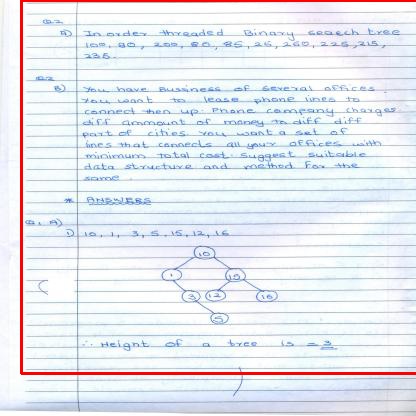 Q.2
A) In order threaded Binary seaech tree
100, 90, 200, 80, 85, 25, 260, 225, 215,
235.
Q.2
B) You have Bussiness of several offices.
You want to lease phone lines to
connect then up. Phone company charges
diff ammount of money to diff diff
part of cities you want a set of
lines that connects all your offices with
minimum total cost. Suggest suitable
data structure and method for the
same.
* ANSWERS
Q.1. A)
i) 10, 1, 3, 5, 15, 12, 16
10
1 15
3 12 16
5
∴ Height of a tree is = 3